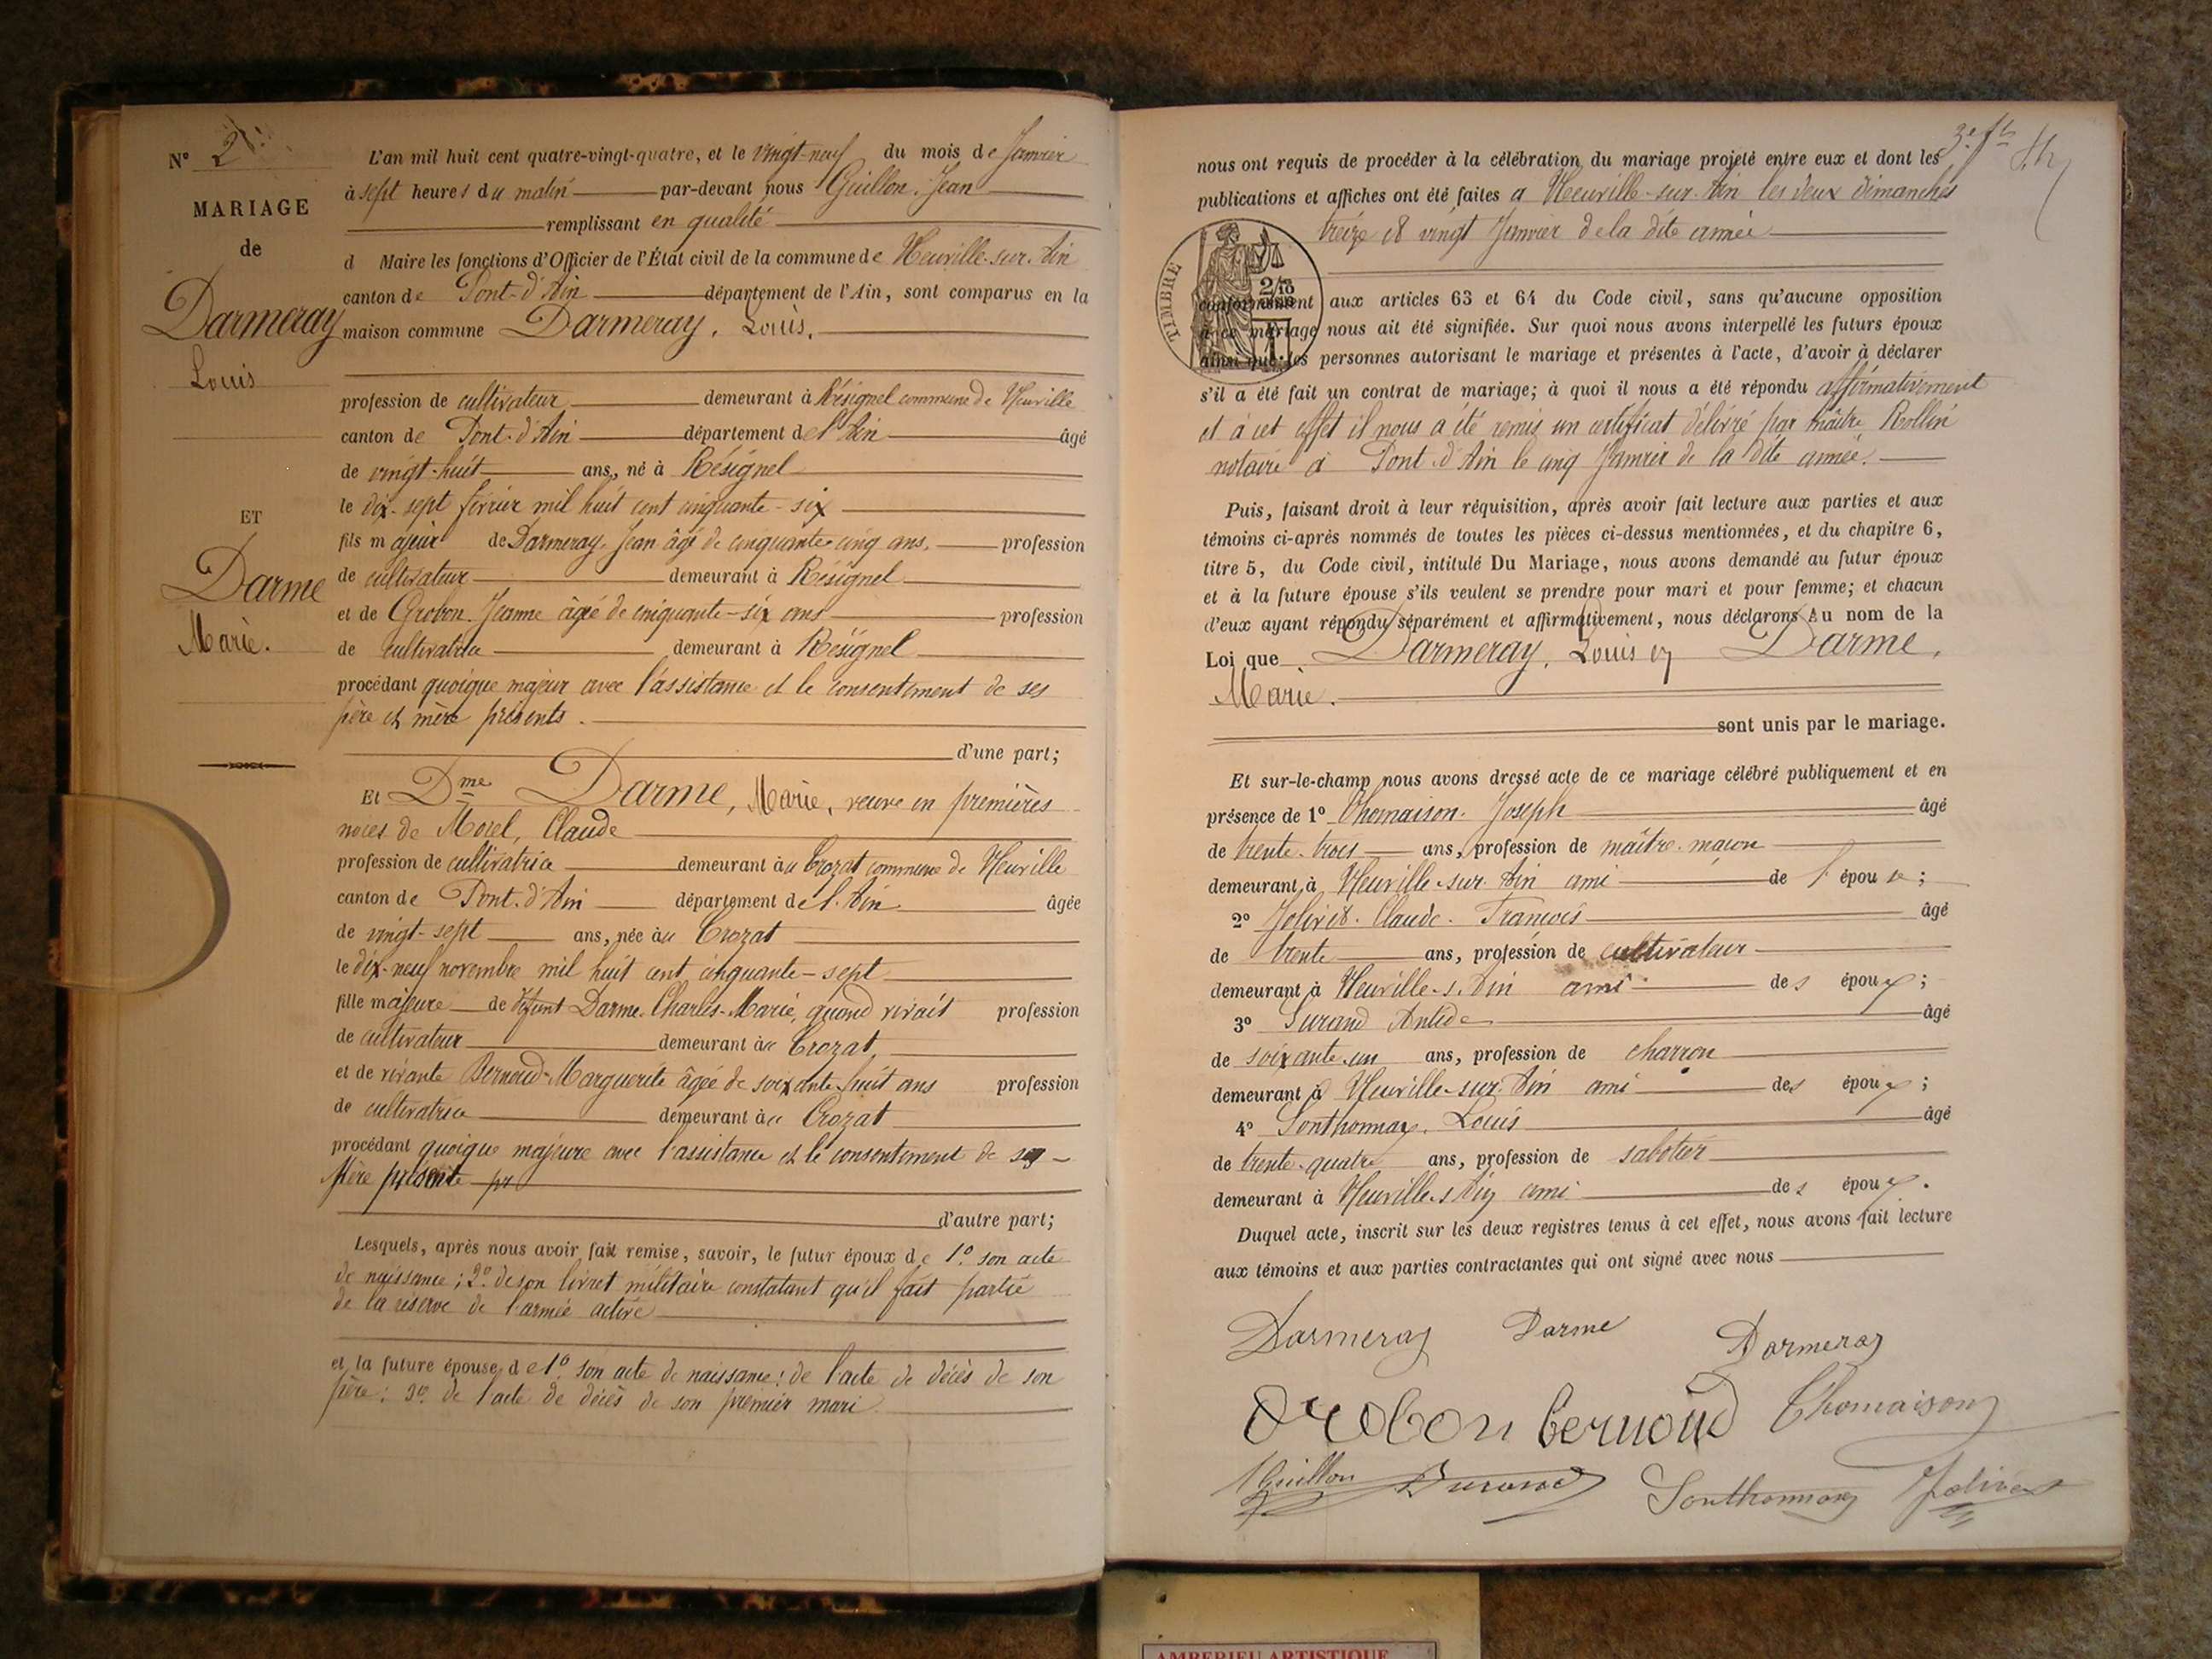 N° 2
MARIAGE
de
Darmeray
Louis
ET
Darme
Marie.
L'an mil huit cent quatre-vingt-quatre, et le vingt-neuf du mois de Janvier
à sept heures du matin par-devant nous Guillon, Jean
remplissant en qualité
d Maire les fonctions d'Officier de l'État civil de la commune de Neuville-sur-Ain
canton de Pont-d'Ain département de l'Ain, sont comparus en la
maison commune Darmeray, Louis,
profession de cultivateur demeurant à Résignel commune de Neuville
canton de Pont-d'Ain département de l'Ain âgé
de vingt-huit ans, né à Résignel
le dix-sept février mil huit cent cinquante-six
fils majeur de Darmeray Jean âgé de cinquante cinq ans, profession
de cultivateur demeurant à Résignel
et de Grobon Jeanne âgée de cinquante-six ans profession
de cultivatrice demeurant à Résignel
procédant quoique majeur avec l'assistance et le consentement de ses
père et mère présents.
d'une part;
Et Dme Darme, Marie, veuve en premières
noces de Morel, Claude
profession de cultivatrice demeurant au Crozat commune de Neuville
canton de Pont-d'Ain département de l'Ain âgée
de vingt-sept ans, née au Crozat
le dix-neuf novembre mil huit cent cinquante-sept
fille majeure de défunt Darme Charles-Marie, quand vivait profession
de cultivateur demeurant au Crozat,
et de vivante Bernoud Marguerite âgée de soixante huit ans profession
de cultivatrice demeurant au Crozat
procédant quoique majeure avec l'assistance et le consentement de sa
Mère présente
d'autre part;
Lesquels, après nous avoir fait remise, savoir, le futur époux de 1° son acte
de naissance; 2° de son livret militaire constatant qu'il fait partie
de la réserve de l'armée active
et la future épouse de 1° son acte de naissance; de l'acte de décès de son
père; 3° de l'acte de décès de son premier mari
3e ft
nous ont requis de procéder à la célébration du mariage projeté entre eux et dont les
publications et affiches ont été faites à Neuville-sur-Ain les deux dimanches
treize et vingt Janvier de la dite année
TIMBRE
conformément aux articles 63 et 64 du Code civil, sans qu'aucune opposition
à ce mariage nous ait été signifiée. Sur quoi nous avons interpellé les futurs époux
ainsi que les personnes autorisant le mariage et présentes à l'acte, d'avoir à déclarer
s'il a été fait un contrat de mariage; à quoi il nous a été répondu affirmativement
et à cet effet il nous a été remis un certificat délivré par maître Rollin
notaire à Pont-d'Ain le cinq Janvier de la dite année.
Puis, faisant droit à leur réquisition, après avoir fait lecture aux parties et aux
témoins ci-après nommés de toutes les pièces ci-dessus mentionnées, et du chapitre 6,
titre 5, du Code civil, intitulé Du Mariage, nous avons demandé au futur époux
et à la future épouse s'ils veulent se prendre pour mari et pour femme; et chacun
d'eux ayant répondu séparément et affirmativement, nous déclarons au nom de la
Loi que Darmeray, Louis et Darme,
Marie.
sont unis par le mariage.
Et sur-le-champ nous avons dressé acte de ce mariage célébré publiquement et en
présence de 1° Chomaison Joseph âgé
de trente-trois ans, profession de maître-maçon
demeurant à Neuville-sur-Ain ami de l'épouse;
2° Jolivet Claude François âgé
de trente ans, profession de cultivateur
demeurant à Neuville-s-Ain ami des époux;
3° Durand Antide âgé
de soixante-un ans, profession de charron
demeurant à Neuville-sur-Ain ami des époux;
4° Sonthonnax Louis âgé
de trente-quatre ans, profession de sabotier
demeurant à Neuville-s-Ain ami des époux.
Duquel acte, inscrit sur les deux registres tenus à cet effet, nous avons fait lecture
aux témoins et aux parties contractantes qui ont signé avec nous
Darmeray Darme Darmeray
Grobon bernoud Chomaison
Guillon Durand Sonthonnax Jolivet
AMBERIEU ARTISTIQUE